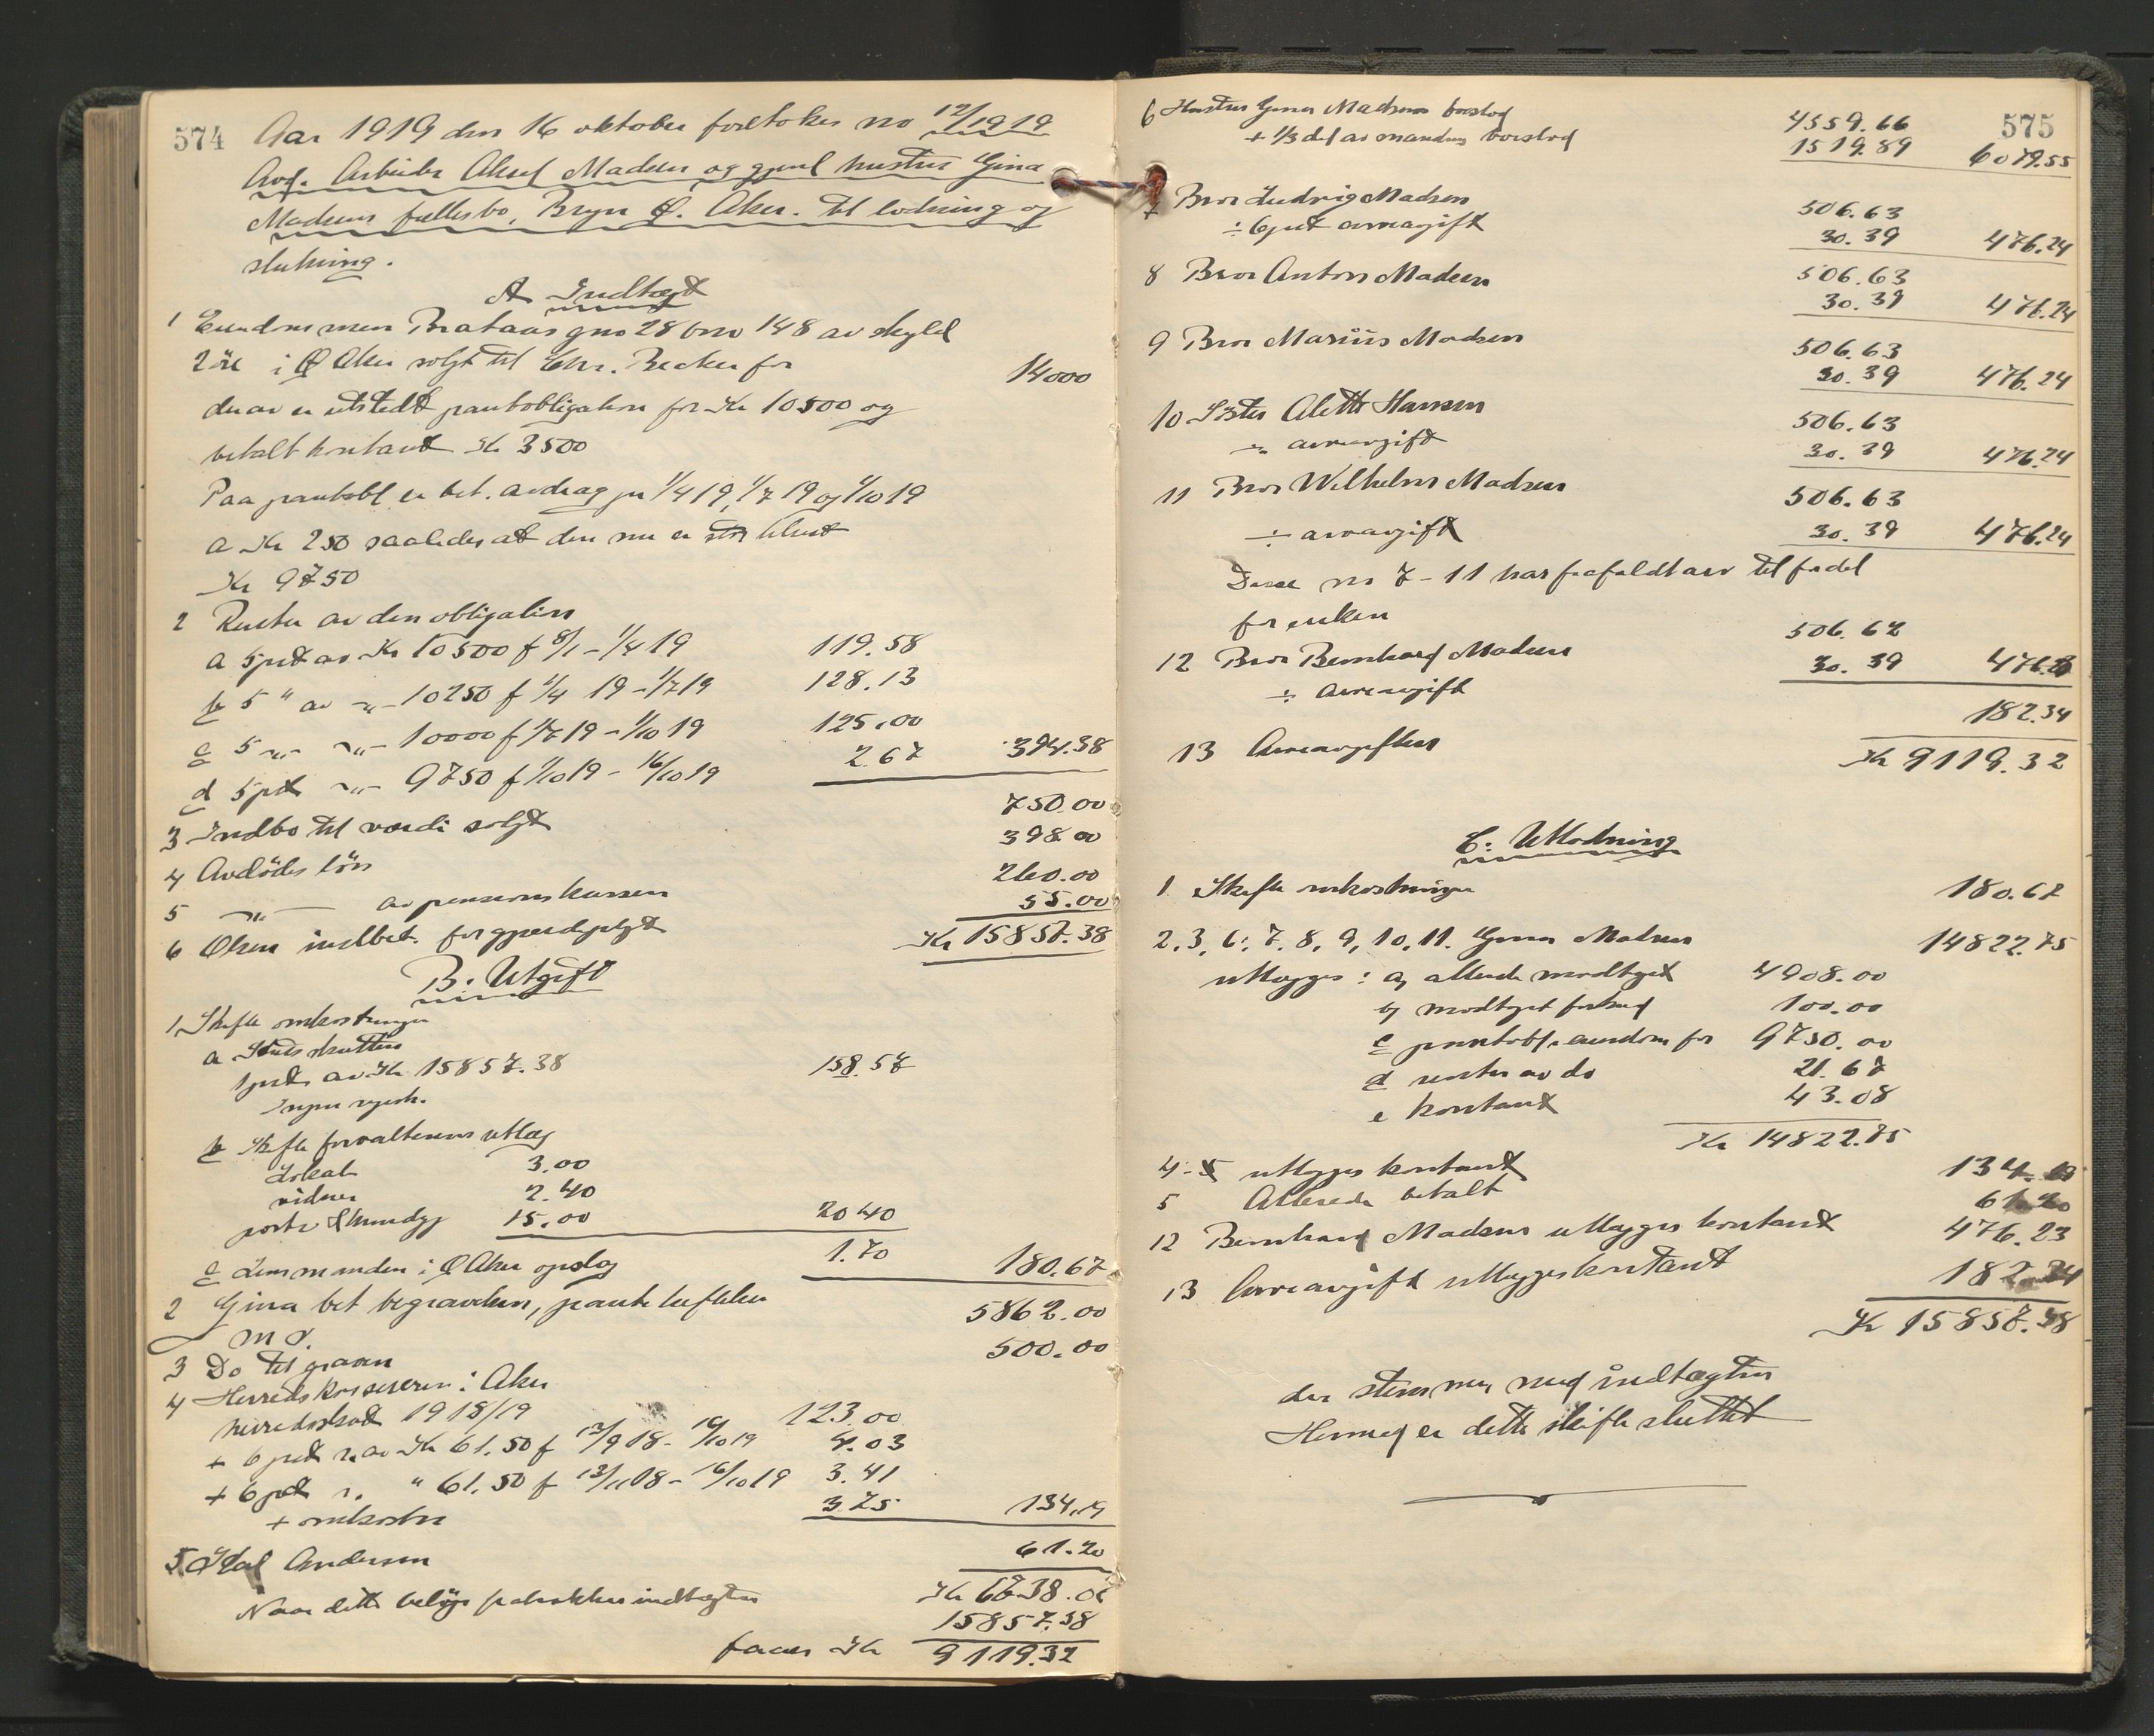 574
Aar 1919 den 16 oktober foretokes no 12/1919
Avd. Arbeider Aksel Madsen og gjenl hustru Gina
Madsens fællesbo, Bryn Ø. Aker. til lodning og
slutning.
A Indtægt
1 Eiendommen Brataas gno 28 bno 148 av skyld
2 øre i Ø Aker solgt til Chr. Becker for 14000
derav er utstedt pantobligation for Kr 10500 og
betalt kontant Kr 3500
Paa pantobl er bet. avdrag pr 1/4 19, 1/7 19 og 1/10 19
a Kr 250 saaledes at den nu er
Kr 9750
2 Renter av den obligation
a 5 pct av Kr 10500 f 8/1 - 1/4 19 119.58
b 5 " av -"- 10250 f 1/4 19 - 1/7 19 128.13
c 5 -"- -"- 10000 f 1/7 19 - 1/10 19 125.00
d 5 pct -"- 9750 f 1/10 19 - 16/10 19 2.67 394.38
3 Indbo til værdi solgt 750.00
4 Avdødes løn 398.00
5 -"- av pensionskassen 260.00
6 Olsen indbet. for gjerdepligt 55.00
Kr 15857.38
B: Utgift
1, Skifte omkostninger
a Skifteskatten
1 pct av Kr 15857.38 158.57
Ingen
b Skifte forvalterens utlæg
Lokale 3.00
vidner 2.40
porto & kundgj 15.00 20 40
c Lensmanden i Ø Aker opslag 1.70 180.67
2 Gina bet begravelsen, pante heftelser 5862.00
m v.
3 Do til graven 500.00
4 Herredskassereren i Aker
herredsskat 1918/19 123.00
+ 6 pct r. av Kr 61.50 f 13/9 18 - 16/10 19 4.03
+ 6 pct r. " 61.50 f 13/11 18 - 16/10 19 3.41
+ omkostn 3.75 134.19
5. Andersen 61.20
Naar dette beløp fratrækkes indtægten Kr 6738.06
15857.38
faaes Kr 9119.32
575
6 Hustru Gina Madsens boslod 4559.66
+ 1/3 del av mandens boslod 1519.89 6079.55
7 Bror Ludvig Madsen 506.63
÷ 6 pct arveavgift 30.39 476.24
8 Bror Anton Madsen 506.63
30.39 476.24
9 Bror Marius Madsen 506.63
30.39 476.24
10 Søster Alette Hansen 506.63
÷ arveavgift 30.39 476.24
11 Bror Wilhelm Madsen 506.63
÷ arveavgift 30.39 476.24
Disse no 7-11 har frafaldt arv til fordel
for enken
12 Bror Bernhard Madsen 506.62
÷ arveavgift 30.39 476.23
13 Arveavgiften 182.34
Kr 9119.32
C: Utlodning
1 Skifte omkostninger 180.67
2, 3, 6, 7, 8, 9, 10, 11. Gina Madsen 14822.75
utlægges: a, allerede modtget 4908.00
b, modtget forskud 100.00
c pantobl. i eiendom for 9750.00
d renter av do 21.67
e kontant 43.08
Kr 14822.75
4 utlægges kontant 134.19
5 Allerede betalt 61.20
12 Bernhard Madsens utlægges kontant 476.23
13 Arveavgift utlægges kontant 182.34
Kr 15857.38
der stemmer med indtægten
Hermed er dette skifte sluttet